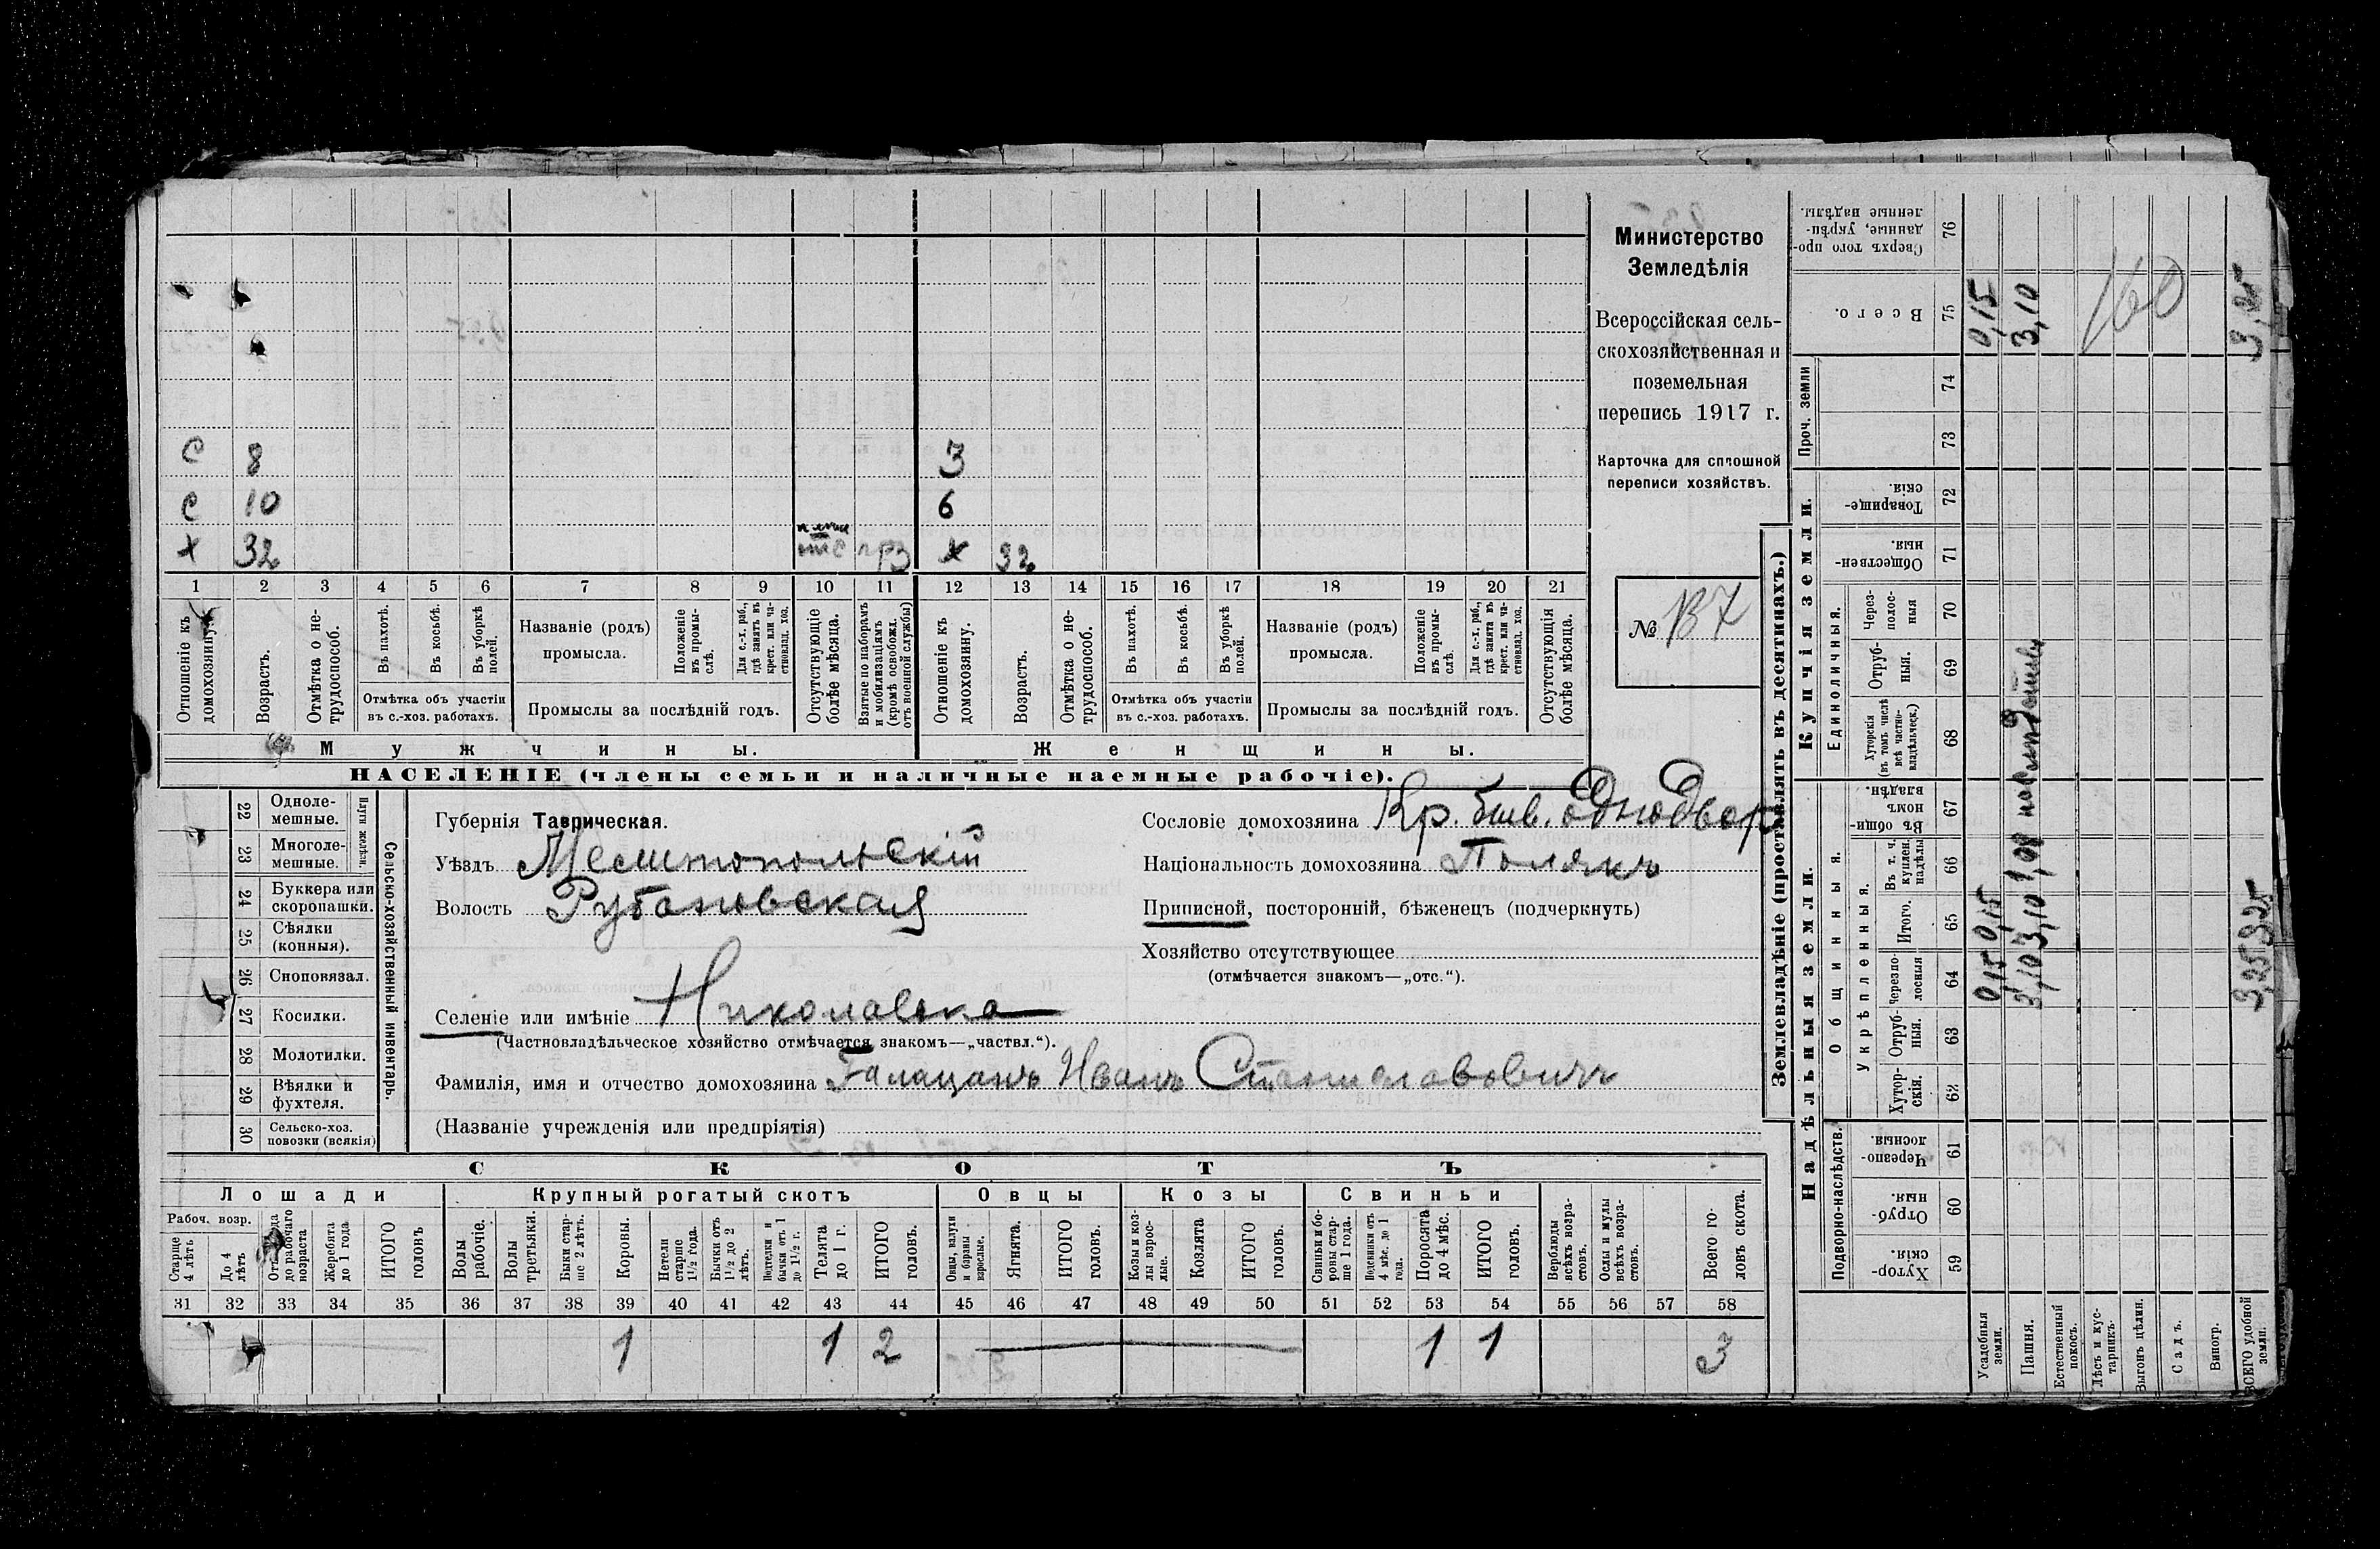 Министерство
Земледѣлія
Всероссійская сель-
скохозяйственная и
поземельная
перепись 1917 г.
Карточка для сплошной
переписи хозяйствъ.
№ 137
С 8 3
С 10 6
Х 32 Х 32
1 2 3 4 5 6 7 8 9 10 11 12 13 14 15 16 17 18 19 20 21
Отношеніе къ домохозяину.
Возрастъ.
Отмѣтка о не-
трудоспособ.
Въ пахотѣ.
Въ косьбѣ.
Въ уборкѣ
полей.
Отмѣтка объ участіи
въ с.-хоз. работахъ.
Названіе (родъ)
промысла.
Положеніе
въ промы-
слѣ.
Для с.-х. раб.,
гдѣ занятъ въ
крест. или ча-
стновлад. хоз.
Промыслы за послѣдній годъ.
Отсутствующіе
болѣе мѣсяца.
Взятые по наборамъ
и мобилизаціямъ
(кромѣ освобожд.
отъ военной службы)
Отношеніе къ
домохозяину.
Возрастъ.
Отмѣтка о не-
трудоспособ.
Въ пахотѣ.
Въ косьбѣ.
Въ уборкѣ
полей.
Отмѣтка объ участіи
въ с.-хоз. работахъ.
Названіе (родъ)
промысла.
Положеніе
въ промы-
слѣ.
Для с.-х. раб.,
гдѣ занята въ
крест. или ча-
стновлад. хоз.
Промыслы за послѣдній годъ.
Отсутствующія
болѣе мѣсяца.
Мужчины.
Женщины.
НАСЕЛЕНІЕ (члены семьи и наличные наемные рабочіе).
22 Одноле-
мешные.
23 Многоле-
мешные.
Плуги желѣзн.
24 Буккера или
скоропашки.
25 Сѣялки
(конныя).
26 Сноповязал.
27 Косилки.
28 Молотилки.
29 Вѣялки и
фухтеля.
30 Сельско-хоз.
повозки (всякія)
Сельско-хозяйственный инвентарь.
Губернія Таврическая.
Уѣздъ Мелитопольскій
Волость Рубановская
Селеніе или имѣніе Николаевка
(Частновладѣльческое хозяйство отмѣчается знакомъ—„частвл.“).
Фамилія, имя и отчество домохозяина Галацанъ Иванъ Станиславовичъ
(Названіе учрежденія или предпріятія)
Сословіе домохозяина Кр. бывш. однодвор
Національность домохозяина Полякъ
Приписной, посторонній, бѣженецъ (подчеркнуть)
Хозяйство отсутствующее
(отмѣчается знакомъ—„отс.“).
СКОТЪ
Лошади
Крупный рогатый скотъ
Овцы
Козы
Свиньи
Рабоч. возр.
Старше
4 лѣтъ
До 4
лѣтъ
Отъ года
до рабочаго
возраста
Жеребята
до 1 года
ИТОГО
головъ
Волы
рабочіе.
Волы
третьяки.
Быки стар-
ше 2 лѣтъ.
Коровы.
Нетели
старше
1½ года.
Бычки отъ
1½ до 2
лѣтъ.
Подтелки и
бычки отъ 1
до 1½ г.
Телята
до 1 г.
ИТОГО
головъ.
Овцы, валухи
и бараны
взрослые.
Ягнята.
ИТОГО
головъ.
Козы и коз-
лы взрос-
лые.
Козлята
ИТОГО
головъ.
Свиньи и бо-
ровы стар-
ше 1 года.
Подсвинки отъ
4 мѣс. до 1
года.
Поросята
до 4 мѣс.
ИТОГО
головъ.
Верблюды
всѣхъ возра-
стовъ.
Ослы и мулы
всѣхъ возра-
стовъ.
Всего го-
ловъ скота.
31 32 33 34 35 36 37 38 39 40 41 42 43 44 45 46 47 48 49 50 51 52 53 54 55 56 57 58
1 1 2 1 1 3
Землевладѣніе (проставлять въ десятинахъ.)
Купчія земли.
Надѣльныя земли.
Сверхъ того про-
данные, укрѣп-
ленные надѣлы.
76
Всего.
75 0,15 3,10 160 3,25
Проч. земли
74
73
Товарище-
скія.
72
Обществен-
ныя.
71
Единоличныя.
Через-
полос-
ныя
70
Отруб-
ныя.
69
Хуторскія
(въ томъ числѣ
всѣ частно-
владѣльческ.)
68
Общинныя.
Въ общин-
номъ
владѣн.
67
Укрѣпленныя.
Въ т. ч.
куплен.
надѣлы
66
Итого.
65 0,15 3,10 3,25
Черезпо-
лосныя
64 0,15 3,10 3,25
Отруб-
ныя.
63
Хутор-
скія.
62
Подворно-наслѣдств.
Черезпо-
лосныя.
61
Отруб-
ныя.
60
Хутор-
скія.
59
Усадебныя
земли.
Пашня.
Естественный
покосъ.
Лѣсъ и кус-
тарникъ.
Выгонъ цѣлин.
Садъ.
Виногр.
ВСЕГО удобной
земли.